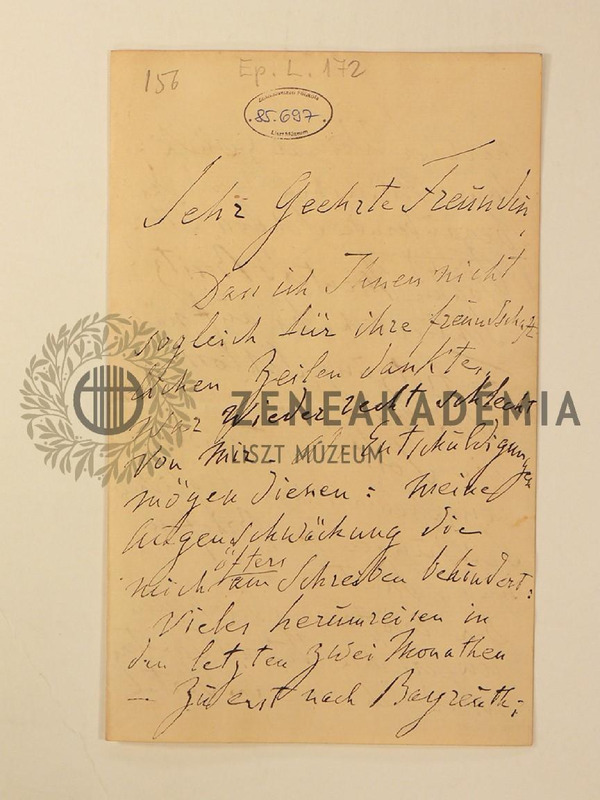 156
Ep. L. 172
85.697
Sehr Geehrte Freundin,
Dass ich Ihnen nicht
sogleich für ihre freundschaft-
lichen Zeilen dankte,
war wieder recht schlecht
von mir – als Entschuldigungen
mögen dienen: meine
Augenschwäckung die
öfters
mich am Schreiben behindert:
Vieles herumreisen in
den letzten zwei Monathen
– Zuerst nach Bayreuth;
ZENEAKADEMIA
LISZT MÚZEUM